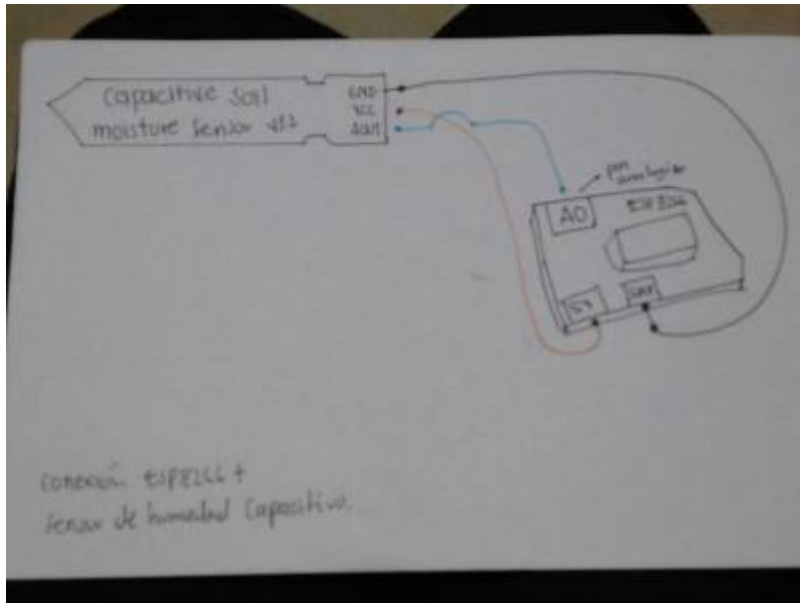 Capacitive Soil
moisture Sensor
GND
VCC
AOUT
pin analogico
A0
ESP8266
5V
GND
conexión ESP8266 +
Sensor de humedad Capacitivo.